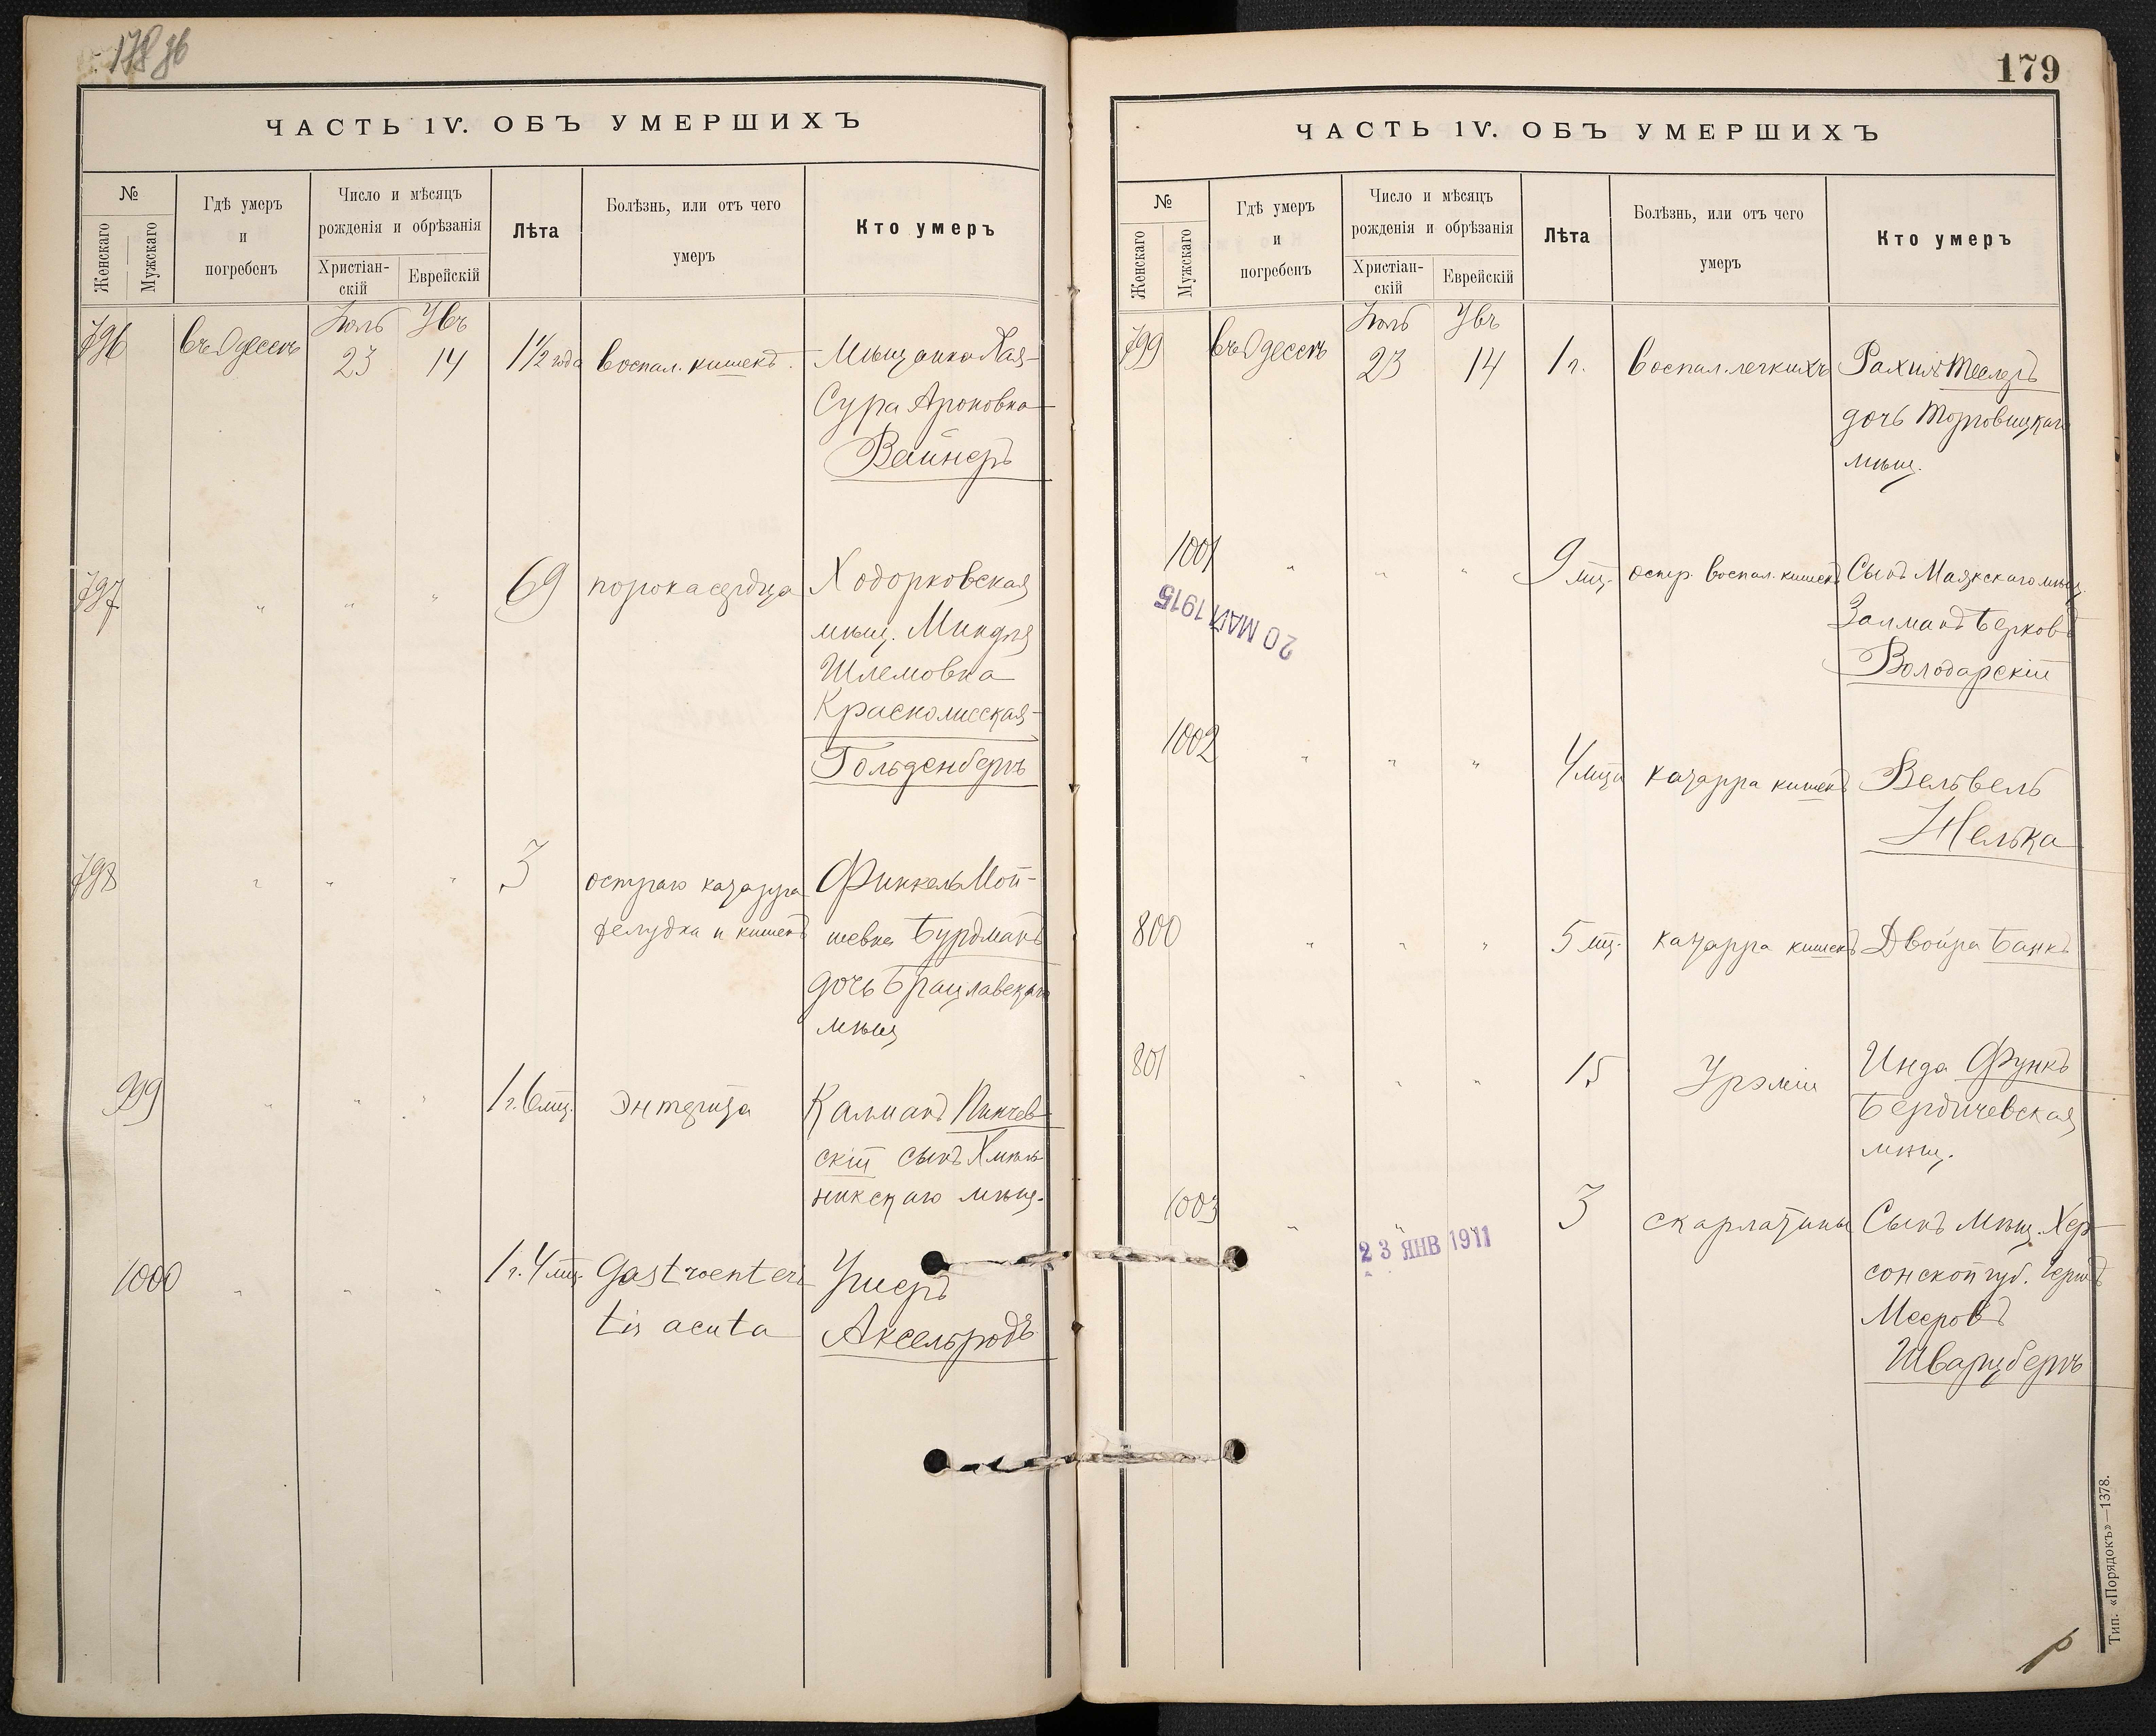 178 об
ЧАСТЬ IV. ОБЪ УМЕРШИХЪ
№
Женскаго
Мужскаго
Гдѣ умеръ
и
погребенъ
Число и мѣсяцъ
рожденія и обрѣзанія
Христіан-
скій
Еврейскій
Лѣта
Болѣзнь, или отъ чего
умеръ
Кто умеръ
796 въ Одессѣ Іюль 23 Увъ 14 1 1/2 года воспал. кишекъ. Мѣщанка Хая-
Сура Ароновна
Вайнеръ
797 " " " 69 порока сердца Ходорковская
мѣщ. Миндля
Шлемовна
Краснолесская-
Гольденбергъ
798 " " " 3 остраго катарра Финкель Мой-
желудка и кишекъ шевна Бурдманъ
дочь Брацлавскаго
мѣщ
999 " " " 1 г. 6 мц. Энтерита Калманъ Пинчев-
скій сынъ Хмѣль-
никскаго мѣщ.
1000 " " " 1 г. 4 мц. Gastroenteri Ушеръ
tis acuta Аксельродъ
179
ЧАСТЬ IV. ОБЪ УМЕРШИХЪ
№
Женскаго
Мужскаго
Гдѣ умеръ
и
погребенъ
Число и мѣсяцъ
рожденія и обрѣзанія
Христіан-
скій
Еврейскій
Лѣта
Болѣзнь, или отъ чего
умеръ
Кто умеръ
799 въ Одессѣ Іюль 23 Увъ 14 1 г. воспал. легкихъ Рахиль Теслеръ
дочь Торговицкаго
мѣщ.
1001 " " " 9 мц. остр. воспал. кишекъ Сынъ Маякскаго мѣщ.
20 МАЙ 1915
Залманъ Берковъ
Володарскій
1002 " " " 4 мца катарра кишекъ Вельвель
Желька
800 " " " 5 мц. катарра кишекъ Двойра Банкъ
801 " " " 15 Урэміи Инда Функъ
Бердичевская
мѣщ.
1003 " " " 3 скарлатины Сынъ мѣщ. Хер-
23 ЯНВ 1911
сонской губ. Гершъ
Мееровъ
Шварцбергъ
Тип: «Порядокъ»—1378.